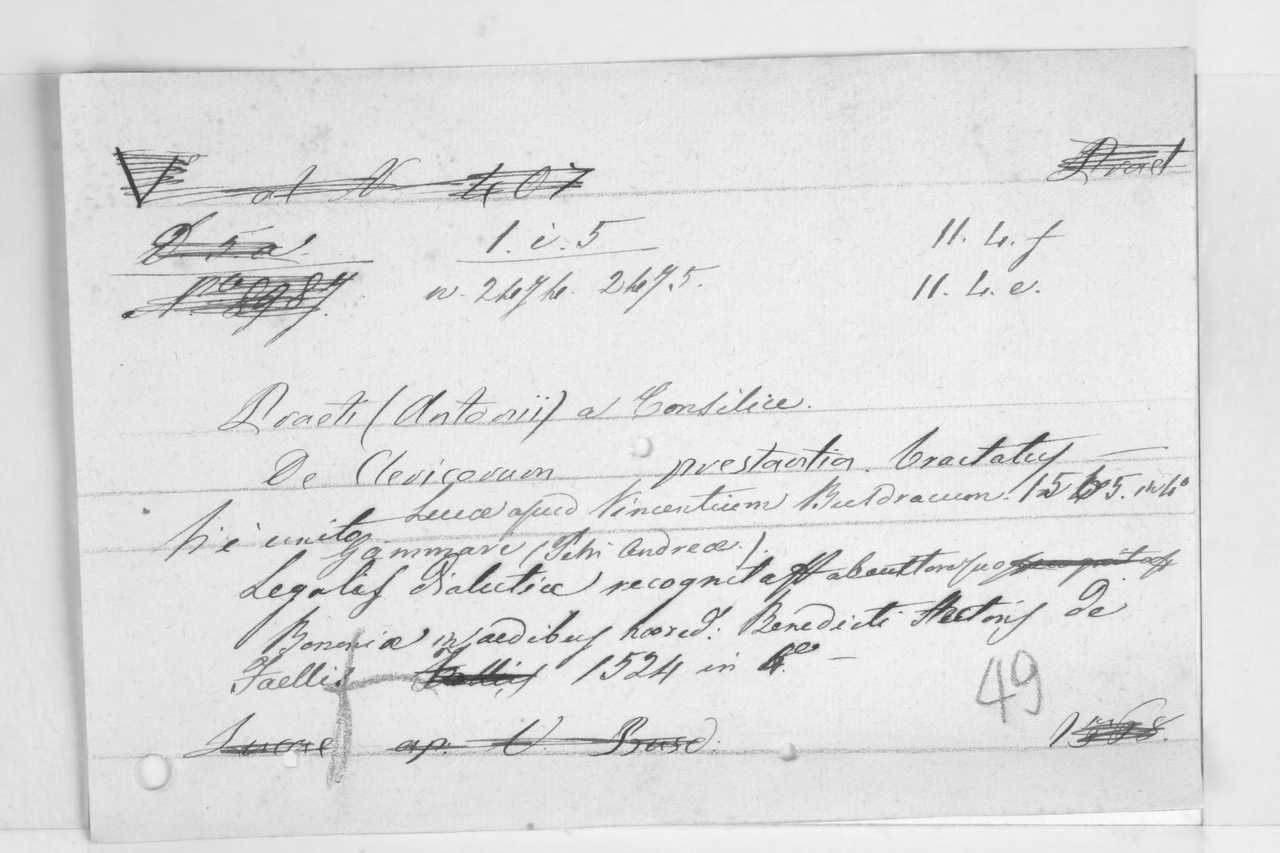 at N 407 Praet
D 5 a 1. i. 5 11. 4. f
n. 2474. 2475. 11. 4. e.
Praeti (Antonii) a Consilice.
De Clericorum prestantia. Tractatus —
Lucæ apud Vincentium Busdracum. 1565. in 4º
Vi è unito
Gammare (Petri Andreæ.).
Legalis dialecticæ recognita ab auttore suo
Bononiæ in aedibus hæred. Benedicti Hectoris de
Faellis 1524 in 4º —
49
Lucae ap. V. Busd. 1568.